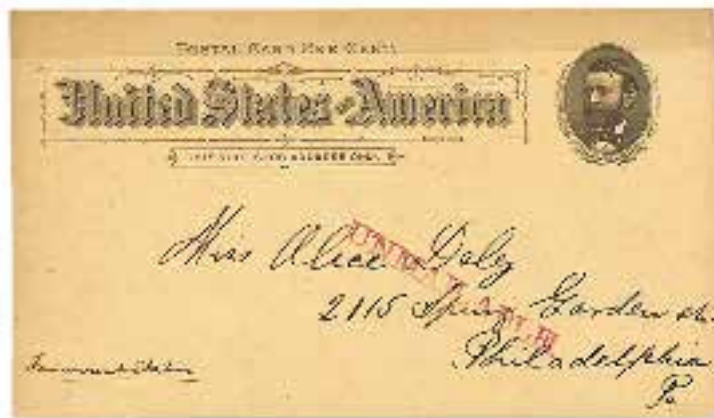 POSTAL CARD ONE CENT.
United States of America
THIS SIDE IS FOR ADDRESS ONLY.
Miss Alice Daly
2115 Spring Garden st.
Philadelphia
Pa